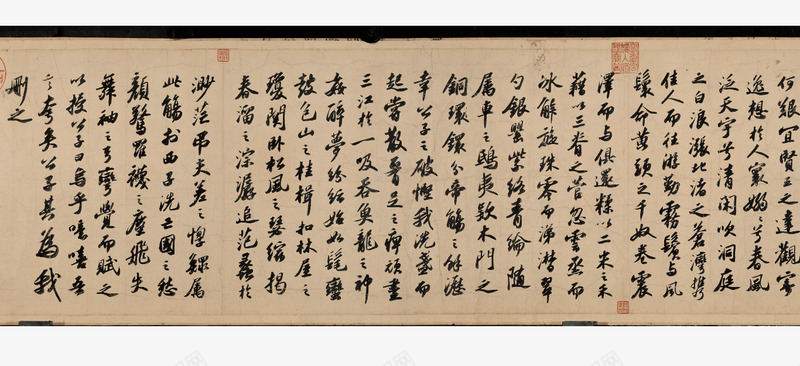 何艱宜賢王之達觀寄
逸想於人寰嫋々兮春風
泛天宇兮清閑吹洞庭
之白浪漲北渚之蒼灣攜
佳人而往遊勤霧鬢與風
鬟命黃頭之千奴卷震
澤而與俱還糅以二米之禾
藉以三脊之菅忽雲烝而
冰解旋珠零而涕潸翠
勺銀罌紫絡青綸隨
屬車之鴟夷款木門之
銅環鐶分帝觴之餘瀝
幸公子之破慳我洗盞而
起嘗散腰足之痺頑盡
三江於一吸吞魚龍之神
姦醉夢紛紜始如髦蠻
鼓包山之桂楫扣林屋之
瓊關臥松風之瑟縮揭
春溜之淙潺追范蠡於
渺茫弔夫差之惸鰥屬
此觴於西子洗亡國之愁
顏驚羅襪之塵飛失
舞袖之弓彎覺而賦之
以授公子曰烏乎噫嘻吾
言夸矣公子其為我
刪之